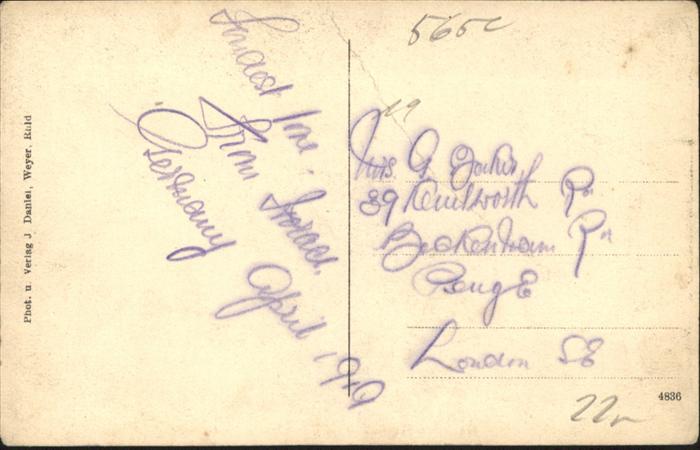 5652
19
Fondest love.
from
Germany
April 1919
Mrs G
39 Kenilworth Rd
Beckenham Rd
Penge
London SE
Phot. u. Verlag J Daniel, Weyer, Rhld
4836
22